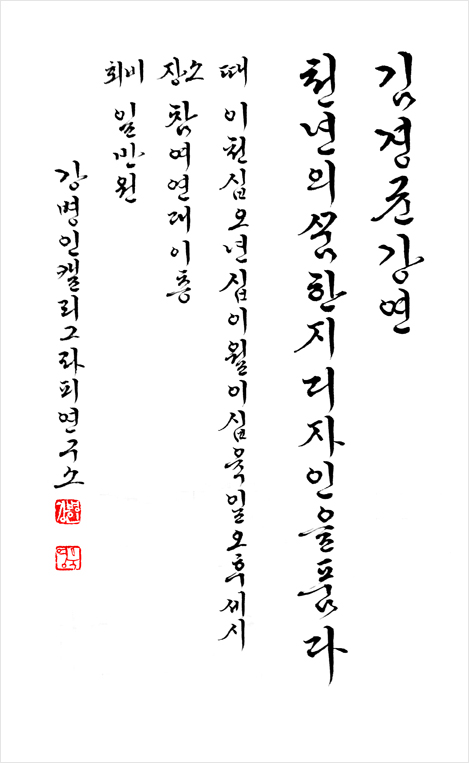 김경균강연
천년의꿈한지디자인을품다
때 이천십오년십이월이십육일오후세시
장소 참여연대이층
회비 일만원
강병인캘리그라피연구소